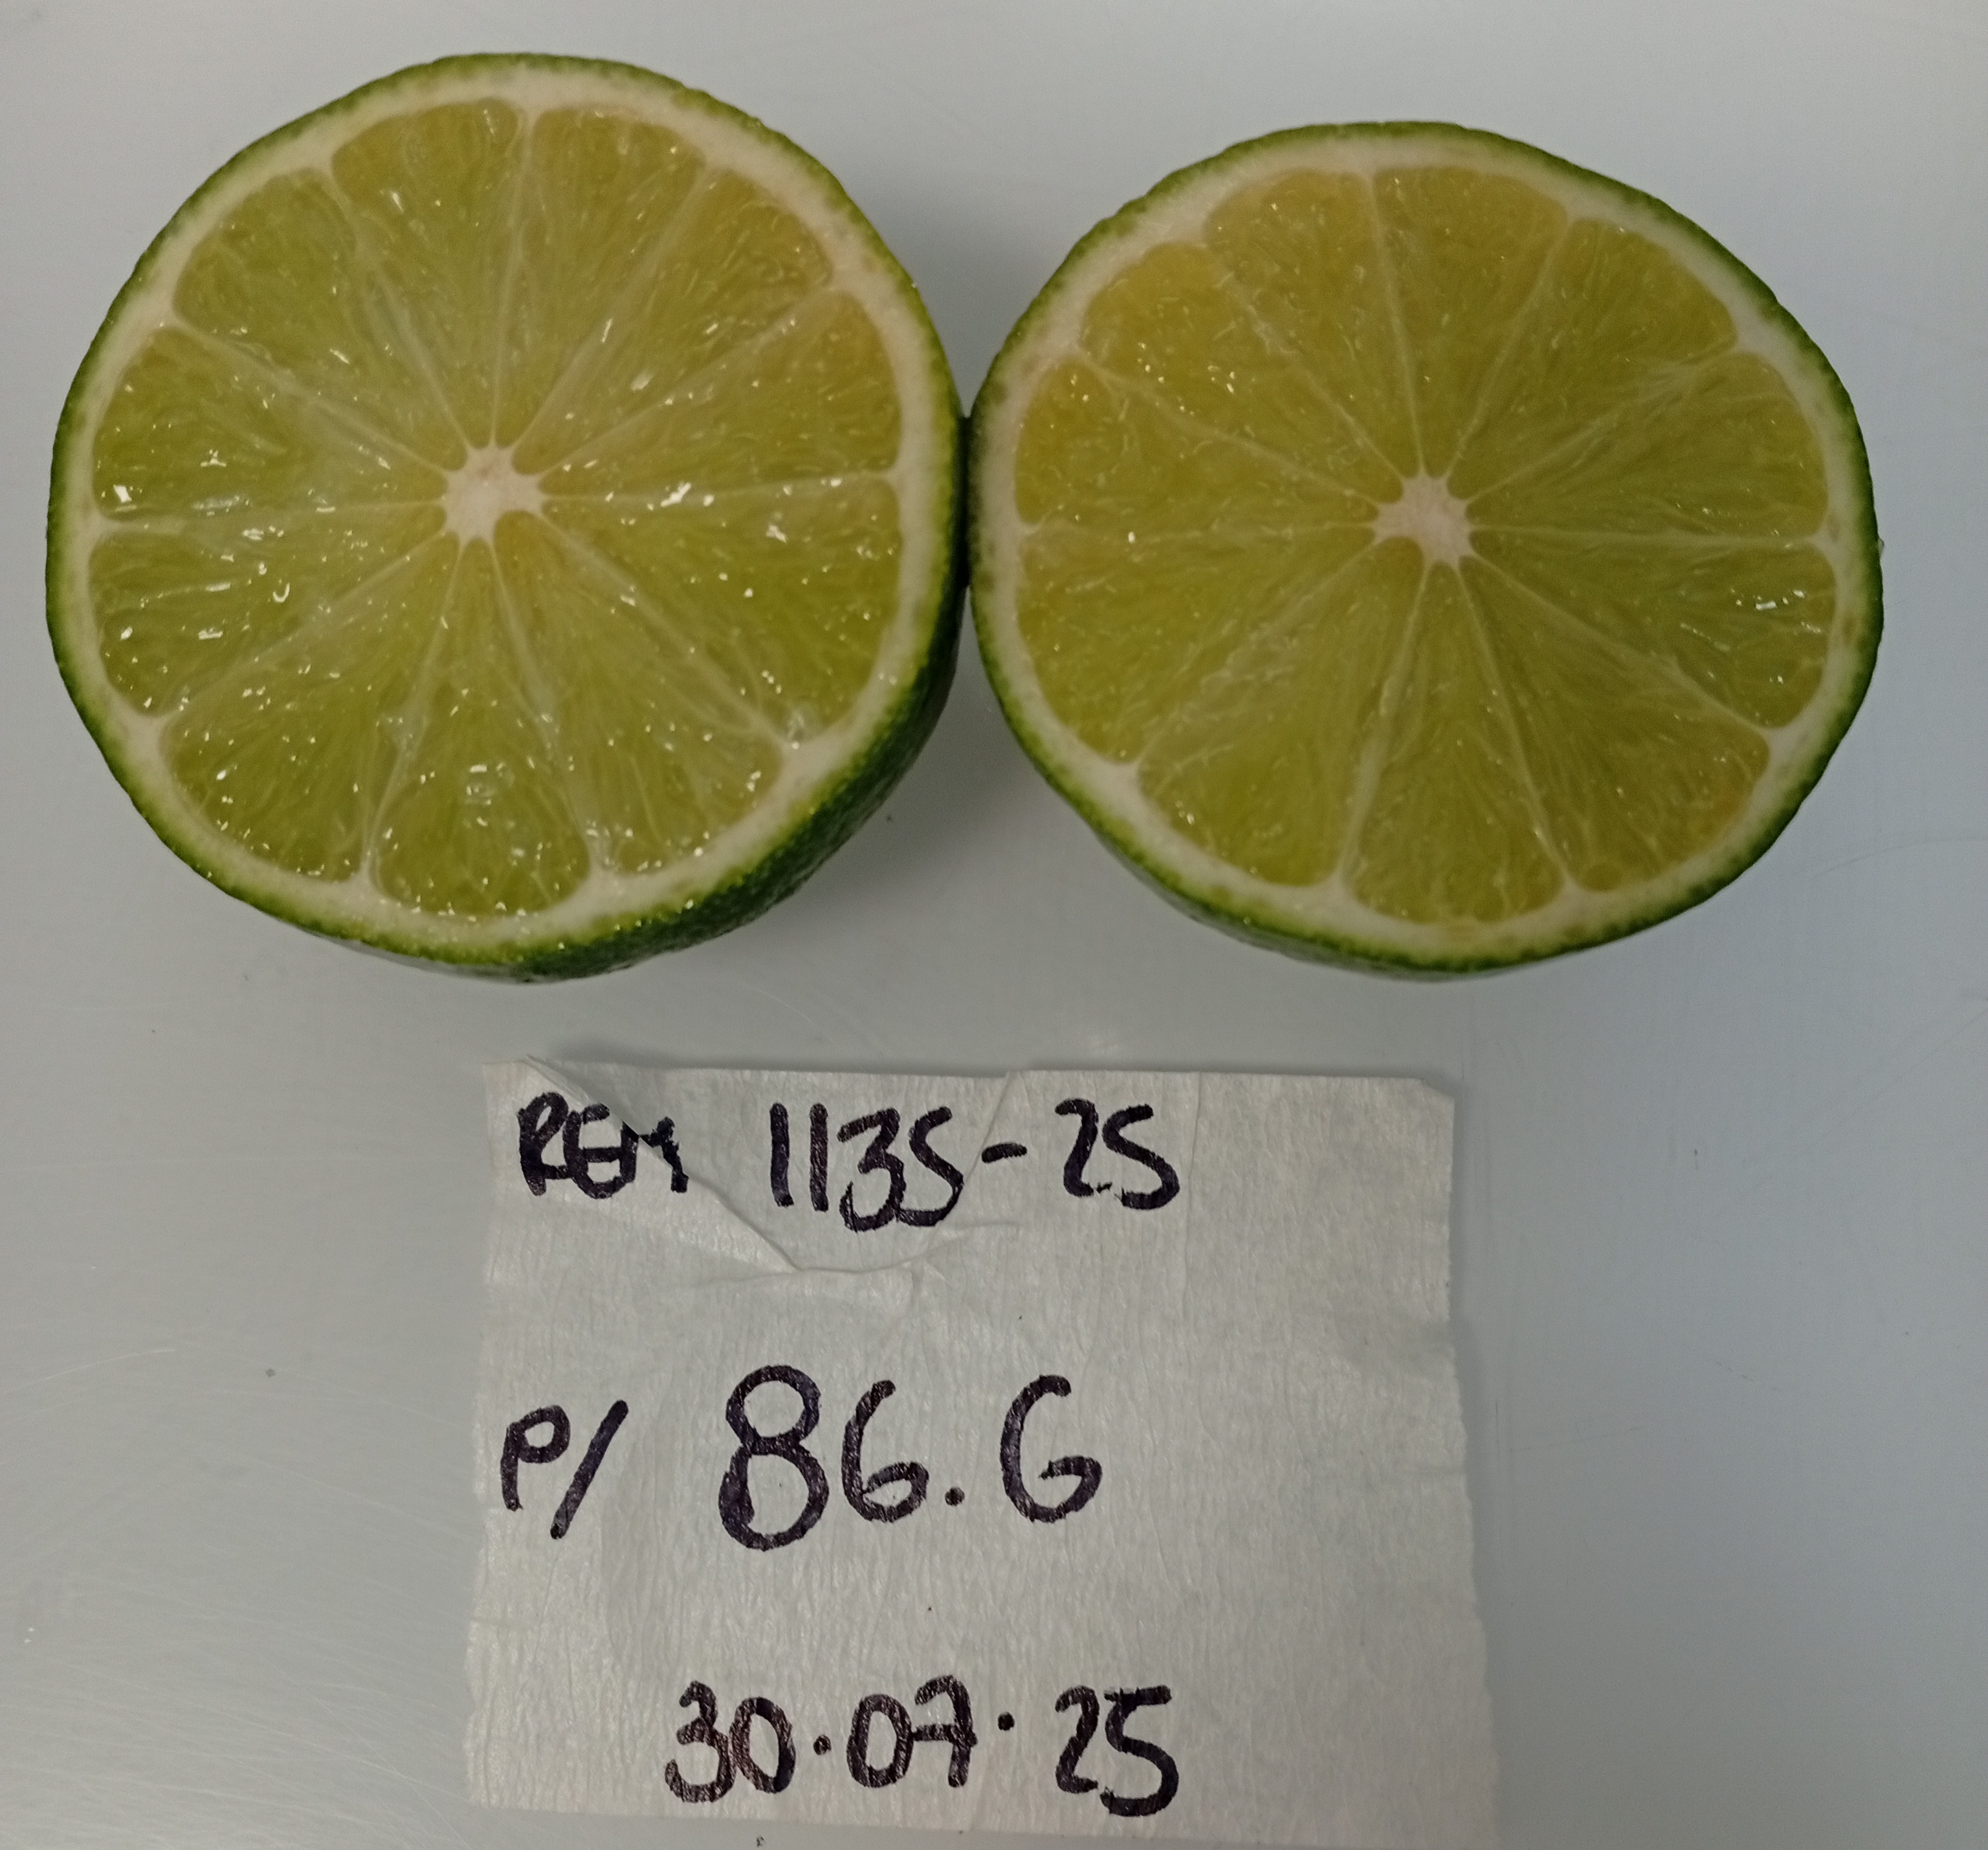 REM 1135-25
P/ 86.6
30.07.25